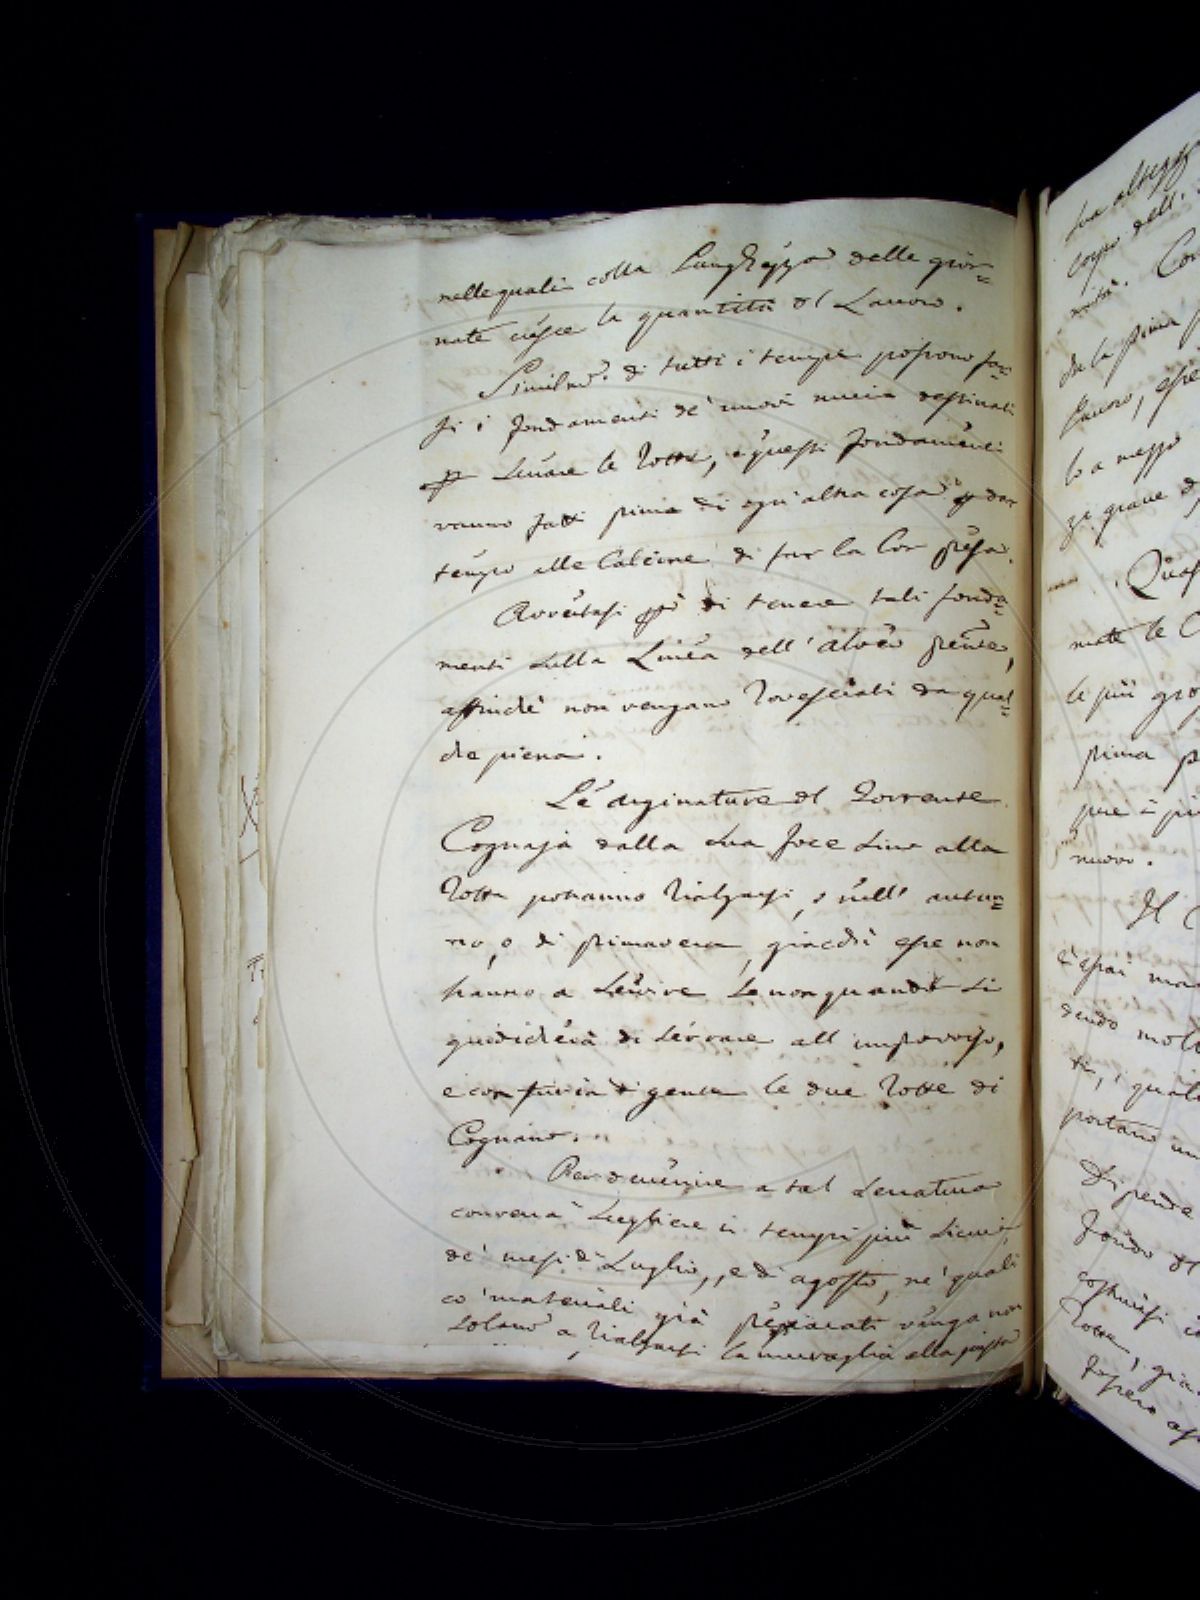 nelle quali colla Lunghezza delle gior=
nate cresce la quantità del Lavoro.
Similme. di tutti i tempi possono far=
si i fondamenti de' nuovi muri destinati
p serrare le Rotte, e questi fondamenti
vanno fatti prima di ogn' altra cosa p dar
tempo alle Calcine di far la Lor presa.
Avvertasi però di tenere tali fonda=
menti sulla Linea dell' alveo presente,
affinchè non vengano Rovesciati da qual=
che piena.
Le arginature del Torrente
Cognajo dalla sua foce sino alla
Rotta potranno Rialzarsi, o nell' autun=
no, o di primavera, giacchè esse non
hanno a servire se non quando si
giudicherà di serrare all' improvviso,
e con furia di gente le due Rotte di
Cognano.
Per devenire a tal serratura
converrà scegliere i tempi più sicuri
de' mesi di Luglio, e di agosto, ne' quali
co' materiali già preparati venga non
solamo a Rialzarsi la muraglia alla giusta
sua altezza
corpo dell'
Con
che la prima
Lavoro, esse
lo a mezzo
ze grave d
mate le C
le più gros
prima p
pre è più
nuovo.
Il C
dendo molt
ti, i quali
portano un
Dipende
fondo del
costruirsi
Rotta, gia